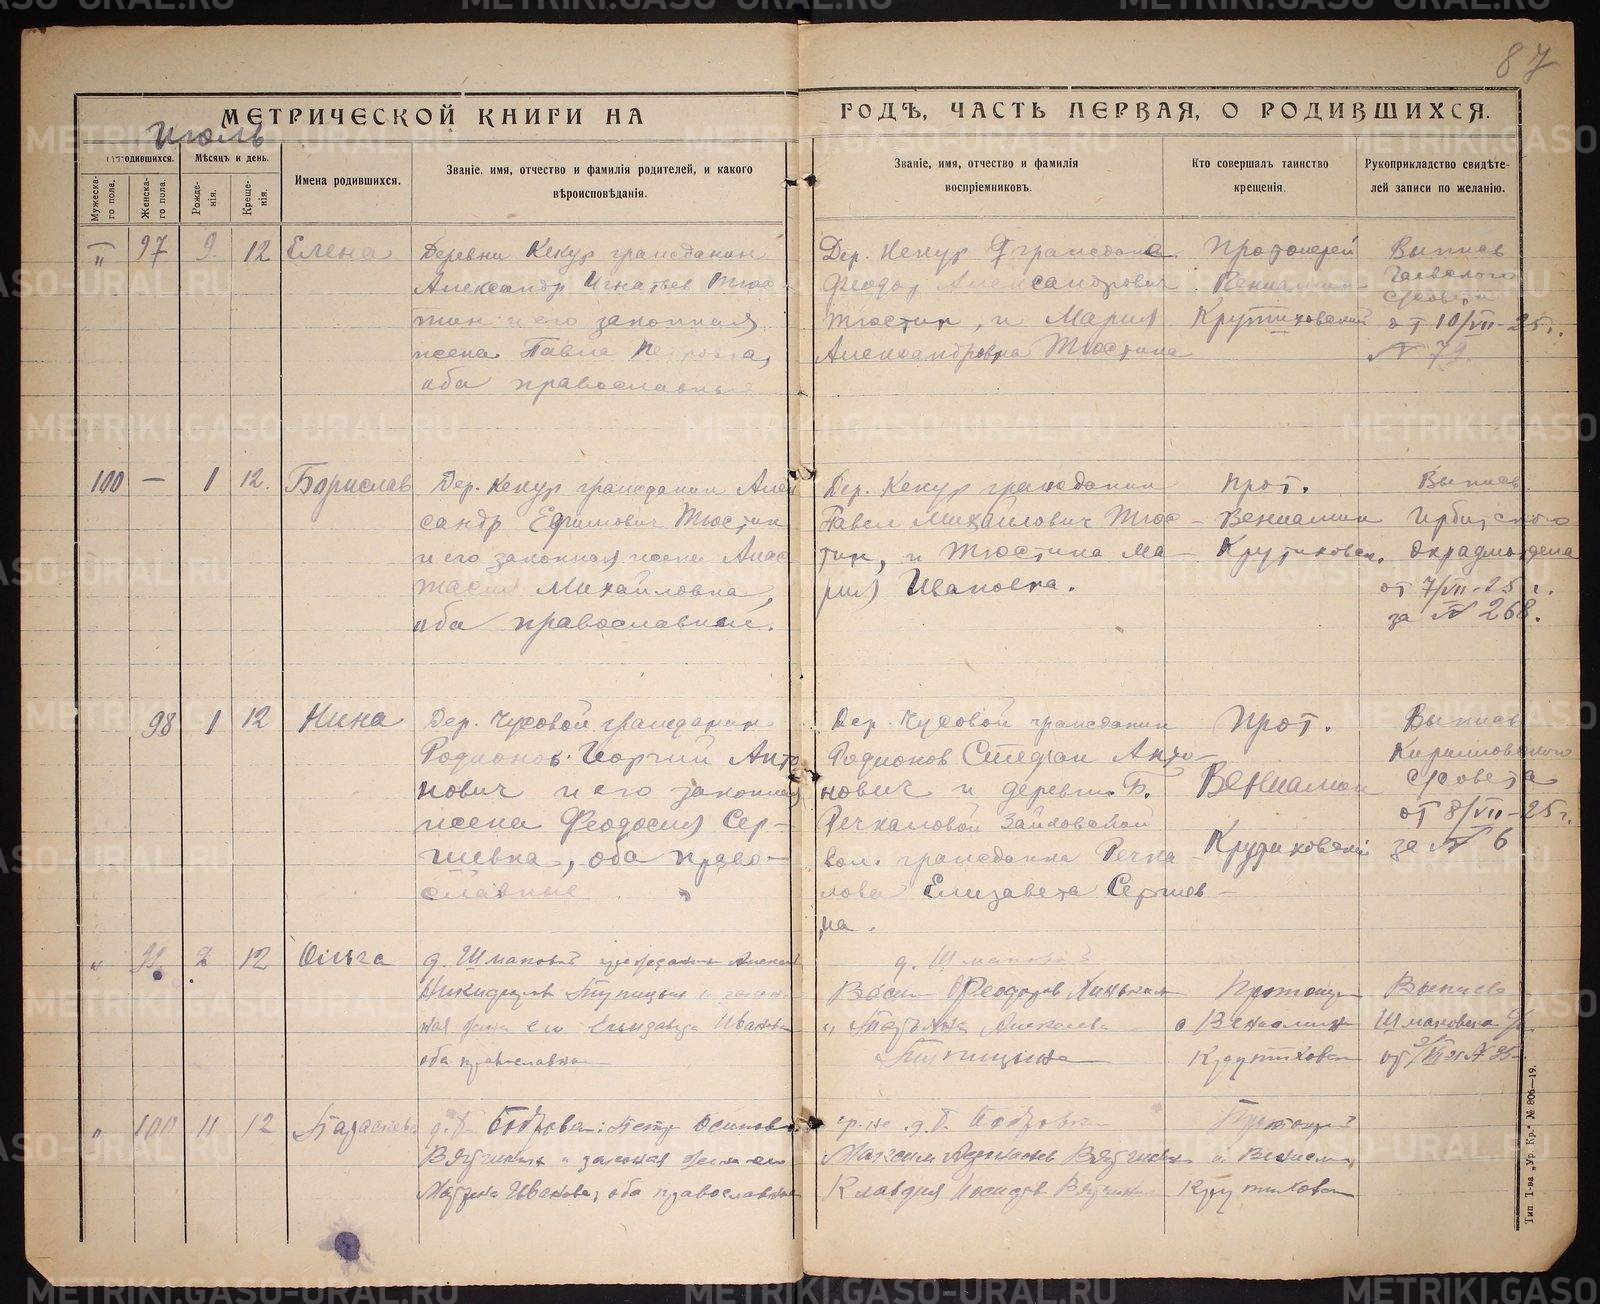 87
МЕТРИЧЕСКОЙ КНИГИ НА
ГОДЪ, ЧАСТЬ ПЕРВАЯ, О РОДИВШИХСЯ.
Июль
родившихся.
Мѣсяцъ и день.
Мужеска-го пола.
Женска-го пола.
Рожде-нія.
Креще-нія.
Имена родившихся.
Званіе, имя, отчество и фамилія родителей, и какого
вѣроисповѣданія.
Званіе, имя, отчество и фамилія
воспріемниковъ.
Кто совершалъ таинство
крещенія.
Рукоприкладство свидѣте-
лей записи по желанію.
" 97 9. 12 Елена
Деревни Кекур гражданин
Александр Игнатьев Тюс-
тин и его законная
жена Павла Петровна,
оба православные
Дер. Кекур граждане
Феодор Александрович
Тюстин, и Мария
Александровна Тюстина
Протоиерей
Вениамин
Крутиховский
Выпись
с/совета
от 10/VII-25 г.
№ 79.
100 — 1 12. Борислав
Дер. Кекур гражданин Алек
сандр Ефимович Тюстин
и его законная жена Анас
тасия Михайловна,
оба православные.
Дер. Кекур гражданин
Павел Михайлович Тюс-
тин, и Тюстина Ма-
рия Ивановна.
Прот.
Вениамин
Крутиховск.
Выпись
Ирбитского
окрадмотдела
от 7/VII-25 г.
за № 268.
98 1 12 Нина
Дер. Чусовой гражданин
Родионов Георгий Анто
нович и его законная
жена Феодосия Сер-
гиевна, оба право-
славные
Дер. Чусовой гражданин
Родионов Стефан Анто-
нович и деревни Б.
Речкаловой Зайковской
вол. гражданка Речка-
лова Елизавета Сергиев-
на.
Прот.
Вениамин
Крутиховский
Выпись
Кирилловского
с/совета
от 8/VII-25 г.
за № 6
" 99 2 12 Ольга
д. Шмаковой гражданин Алексей
Никифоров Тупицын и закон-
ная жена его Елизавета Иванова
оба православные
д. Шмаковой
Феодоров
и Татьяна Алексеева
Тупицына
Протоиерей
Вениамин
Крутиховский
Выпись
Шмаковского
" 100 11 12
Петр Осипов
Вяткин и законная жена его
Иванова, оба православные
Максим Вяткин и
Клавдия
Протоиерей
Вениамин
Крутиховский
Тип. Т-ва „Ур. Кр." № 806—19.
METRIKI.GASO-URAL.RU